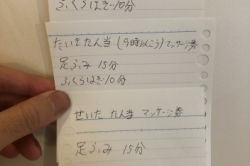 ふくらはぎ10分
たいき たん当 (今時いこう) マッサージ券
足ふみ 15分
ふくらはぎ10分
せいた たん当 マッサージ券
足ふみ 15分